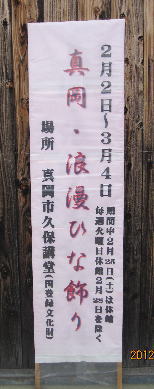 2月2日～3月4日
期間中2月25日(土)は休館
毎週火曜日休館2月28日を除く
真岡・浪漫ひな飾り
場所　真岡市久保講堂(国登録文化財)
2012